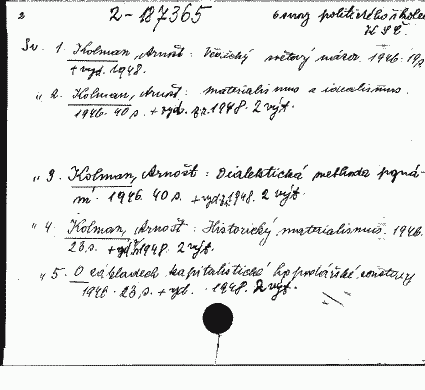 2
2-187365
6 svaz politického školen
KSČ.
Sv. 1. Kolman, Arnošt: Vědecký světový názor. 1946. 19 s.
+ vyd. 1948.
" 2. Kolman, Arnošt: materialismus a idealismus.
1946. 40 s. + vyd. 1948. 2 výt.
" 3. Kolman, Arnošt: Dialektická methoda pozná-
ní. 1946. 40 s. + vyd. 1948. 2 výt.
" 4. Kolman, Arnošt: Historický materialismus. 1946.
23 s. + vyd. 1948. 2 výt.
" 5. O základech kapitalistické hospodářské soustavy
1946. 23 s. + vyd. 1948. 2 výt.